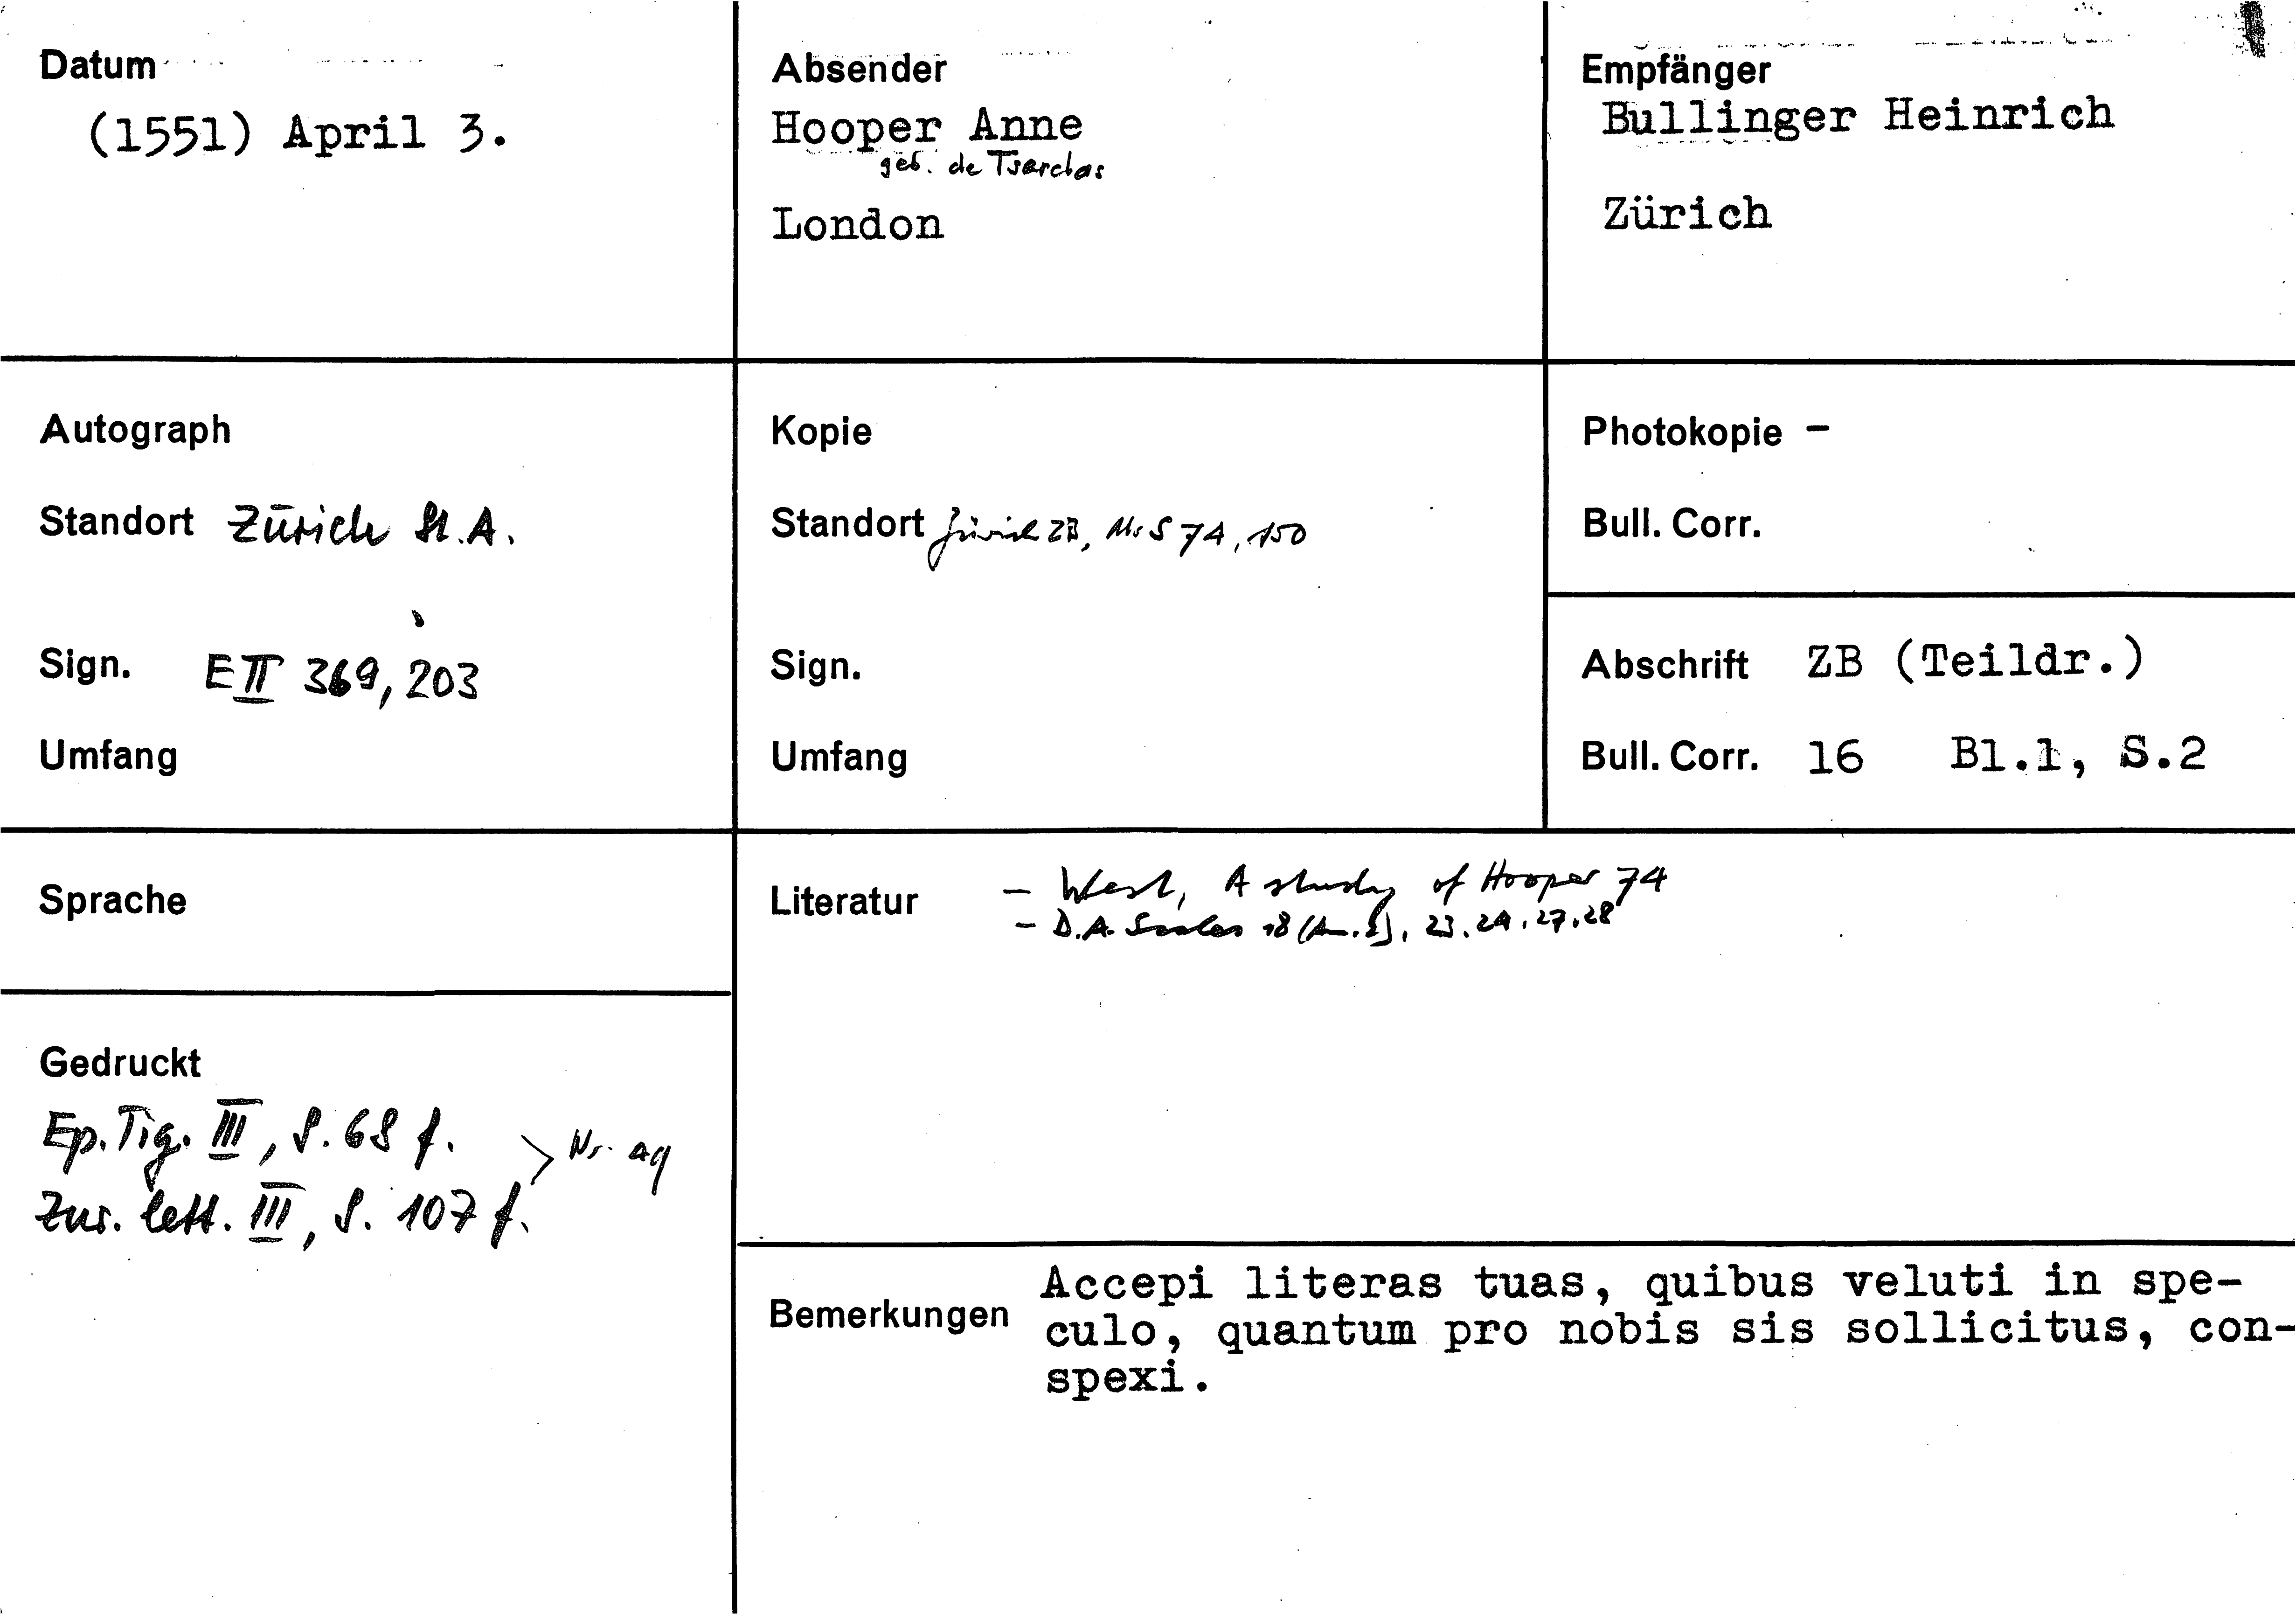 Datum
(1551) April 3.
Absender
Hooper Anne
geb. de Tserclas
London
Empfänger
Bullinger Heinrich
Zürich
Autograph
Standort Zürich St.A.
Sign. E II 369, 203
Umfang
Kopie
Standort Zürich ZB, Ms S 74, 150
Sign.
Umfang
Photokopie -
Bull. Corr.
Abschrift ZB (Teildr.)
Bull. Corr. 16 Bl.1, S.2
Sprache
Literatur - West, A study of Hooper 74
- D.A. 18 23. 24. 27. 28
Gedruckt
Ep. Tig. III, S. 68 f.
Zur. lett. III, S. 107 f.
Nr.
Bemerkungen
Accepi literas tuas, quibus veluti in spe-
culo, quantum pro nobis sis sollicitus, con-
spexi.